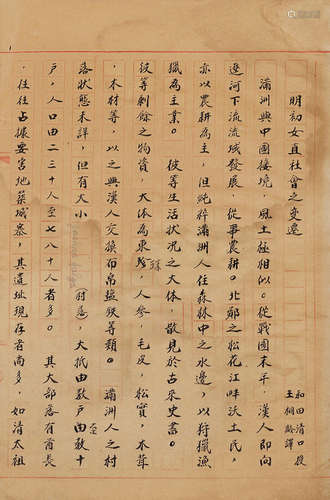 明初女直社會之變遷
和田清口授
王桐齡譯
滿洲與中國接壤，風土極相似。從戰國末年，漢人即向
遼河下流流域發展，從事農耕。北鄰之松花江畔沃土民，
亦以農耕為主，但純粹滿洲人住森林中之水邊，以狩獵漁
獵為主業。彼等生活狀況之大体，散見於古來史書。
彼等剩餘之物資，大体為東珠人參，毛皮，松實，木茸
，木材等，以之與漢人交換布帛塩鉄等類。滿洲人之村
落狀態未詳，但有大小（部落），大抵由數戶至數十
戶，人口由二三十人至七八十人者多。其大部落有酋長
，往往占據要害地築城寨，其遺址現存者尚多，如清太祖